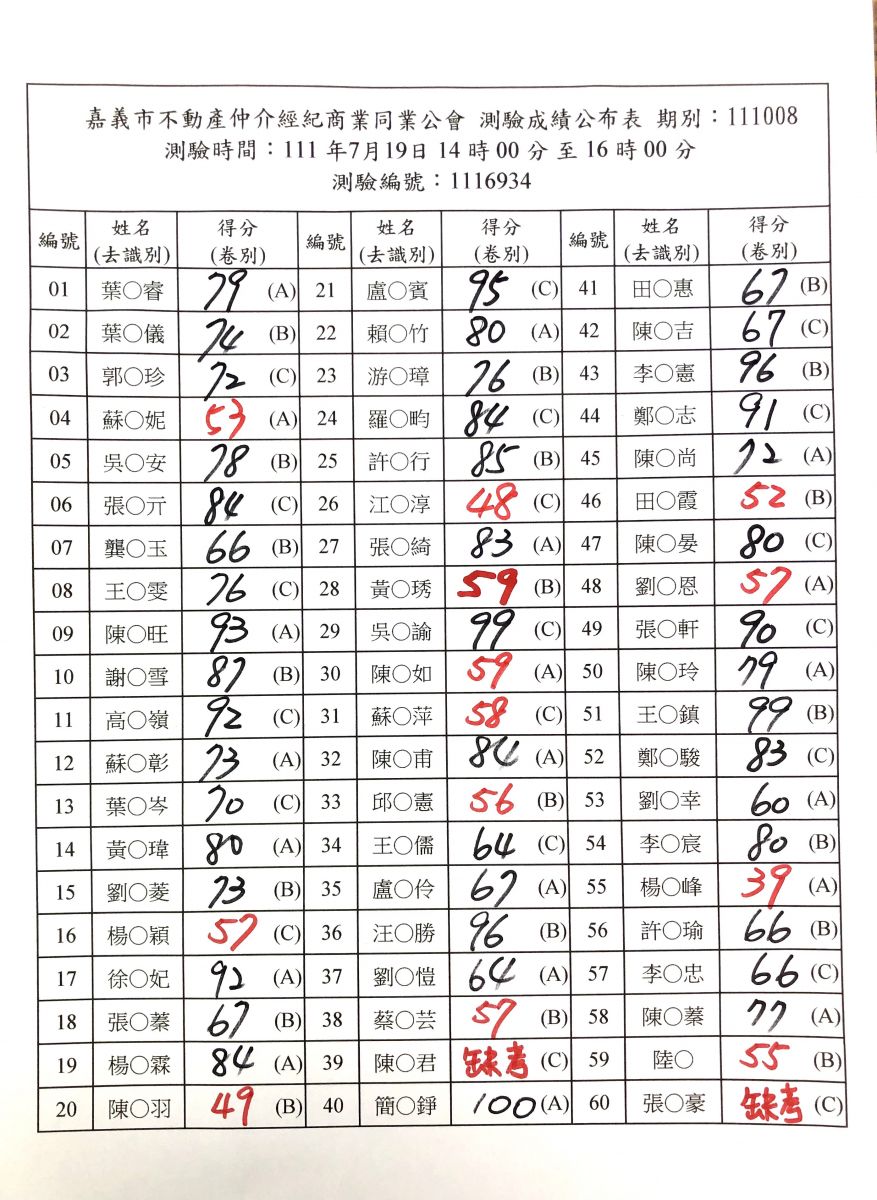 嘉義市不動產仲介經紀商業同業公會 測驗成績公布表 期別：111008
測驗時間：111 年7月19日 14 時 00 分 至 16 時 00 分
測驗編號：1116934
編號 姓名(去識別) 得分(卷別) 編號 姓名(去識別) 得分(卷別) 編號 姓名(去識別) 得分(卷別)
01 葉〇睿 79 (A) 21 盧〇賓 95 (C) 41 田〇惠 67 (B)
02 葉〇儀 74 (B) 22 賴〇竹 80 (A) 42 陳〇吉 67 (C)
03 郭〇珍 72 (C) 23 游〇璋 76 (B) 43 李〇憲 96 (B)
04 蘇〇妮 53 (A) 24 羅〇畇 84 (C) 44 鄭〇志 91 (C)
05 吳〇安 78 (B) 25 許〇行 85 (B) 45 陳〇尚 72 (A)
06 張〇亓 84 (C) 26 江〇淳 48 (C) 46 田〇霞 52 (B)
07 龔〇玉 66 (B) 27 張〇綺 83 (A) 47 陳〇晏 80 (C)
08 王〇雯 76 (C) 28 黃〇琇 59 (B) 48 劉〇恩 57 (A)
09 陳〇旺 93 (A) 29 吳〇諭 99 (C) 49 張〇軒 90 (C)
10 謝〇雪 87 (B) 30 陳〇如 59 (A) 50 陳〇玲 79 (A)
11 高〇嶺 92 (C) 31 蘇〇萍 58 (C) 51 王〇鎮 99 (B)
12 蘇〇彰 73 (A) 32 陳〇甫 84 (A) 52 鄭〇駿 83 (C)
13 葉〇岑 70 (C) 33 邱〇憲 56 (B) 53 劉〇幸 60 (A)
14 黃〇瑋 80 (A) 34 王〇儒 64 (C) 54 李〇宸 80 (B)
15 劉〇菱 73 (B) 35 盧〇伶 67 (A) 55 楊〇峰 39 (A)
16 楊〇穎 57 (C) 36 汪〇勝 96 (B) 56 許〇瑜 66 (B)
17 徐〇妃 92 (A) 37 劉〇愷 64 (A) 57 李〇忠 66 (C)
18 張〇蓁 67 (B) 38 蔡〇芸 57 (B) 58 陳〇蓁 77 (A)
19 楊〇霖 84 (A) 39 陳〇君 缺考 (C) 59 陸〇 55 (B)
20 陳〇羽 49 (B) 40 簡〇錚 100 (A) 60 張〇豪 缺考 (C)